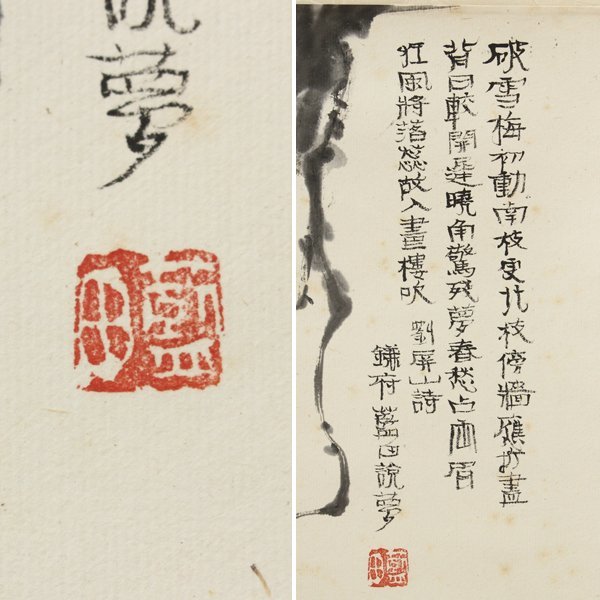 說夢
破雪梅初動南枝更北枝傍牆應折盡
背日較開遲曉角驚殘夢春愁占兩眉
狂風將落蕊故入畫樓吹 劉屏山詩
鎌府 藍田說夢